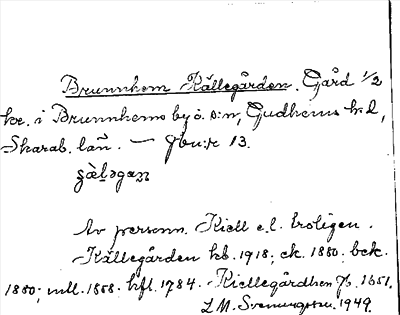 Brunnhem Källegården. Gård 1/2
kr. i Brunnhems by o. s:n, Gudhems hd,
Skarab. län. — Jbn:r 13.
Av personn. Kiell e.l. troligen.
Källegården kb. 1918; ek. 1880; bek.
1880; mll. 1858. hfl. 1784. Kiellegårdhen Jb. 1651.
L.M. Svenungsson. 1949.